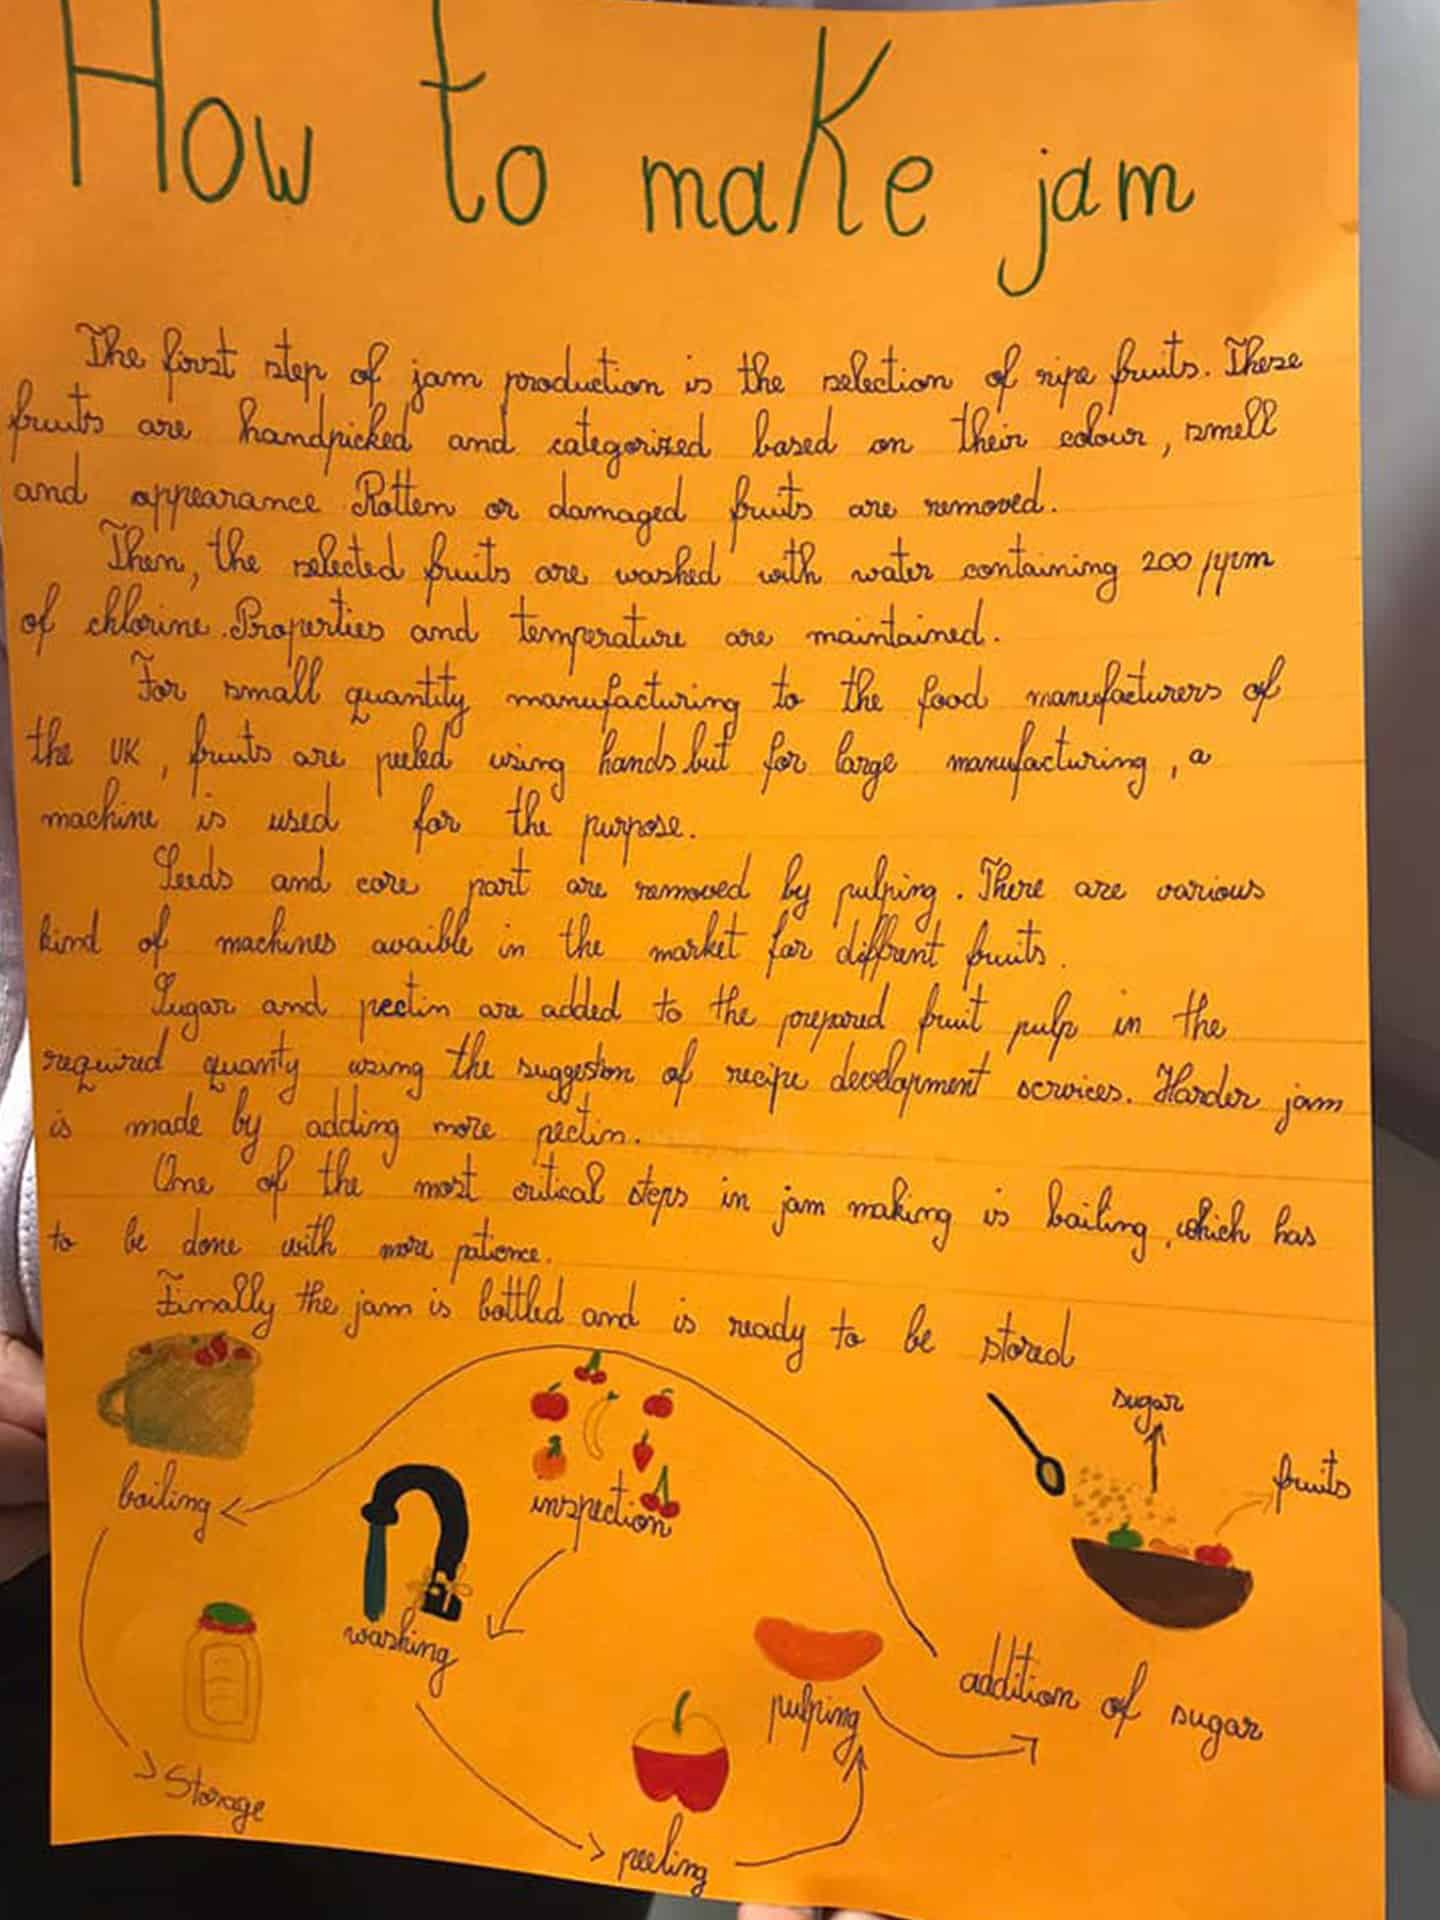 How to make jam
The first step of jam production is the selection of ripe fruits. These
fruits are handpicked and categorized based on their colour, smell
and appearance Rotten or damaged fruits are removed.
Then, the selected fruits are washed with water containing 200 ppm
of chlorine. Properties and temperature are maintained.
For small quantity manufacturing to the food manufacturers of
the UK, fruits are peeled using hands but for large manufacturing, a
machine is used for the purpose.
Seeds and core part are removed by pulping. There are various
kind of machines avaible in the market for diffrent fruits.
Sugar and pectin are added to the prepared fruit pulp in the
required quanty using the suggestion of recipe development services. Harder jam
is made by adding more pectin.
One of the most critical steps in jam making is boiling, which has
to be done with more patience.
Finally the jam is bottled and is ready to be stored
sugar
fruits
boiling
inspection
washing
addition of sugar
pulping
Storage
peeling